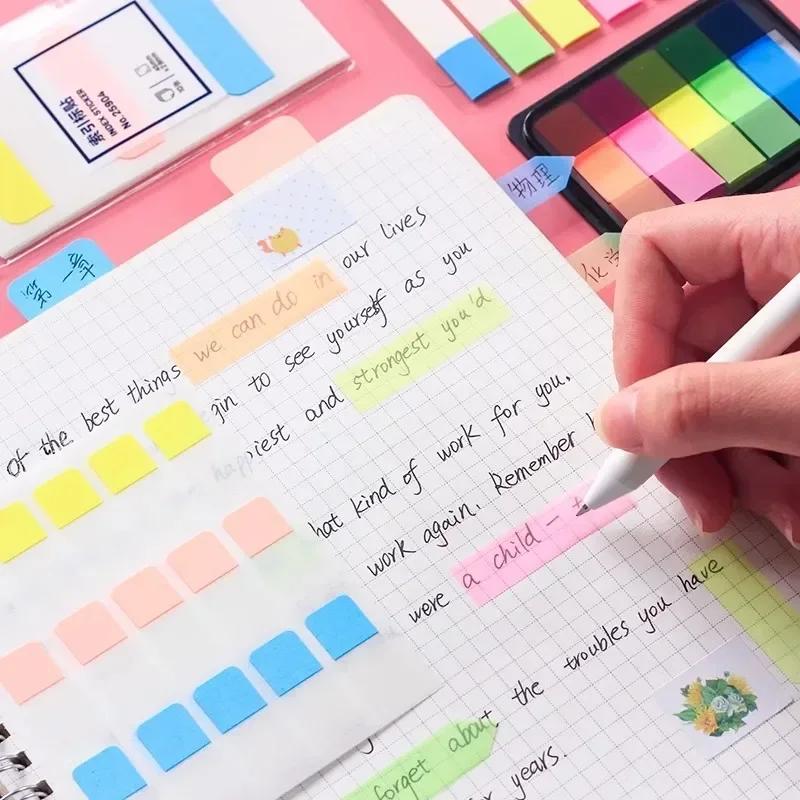 索引标贴
INDEX STICKER
No.25904
第一章
物理
化学
our lives
we can do in
of the best things
to see yourself as you
happiest and strongest you'd
hat kind of work for you.
work again. Remember
were a child -
the troubles you have
forget about
years.